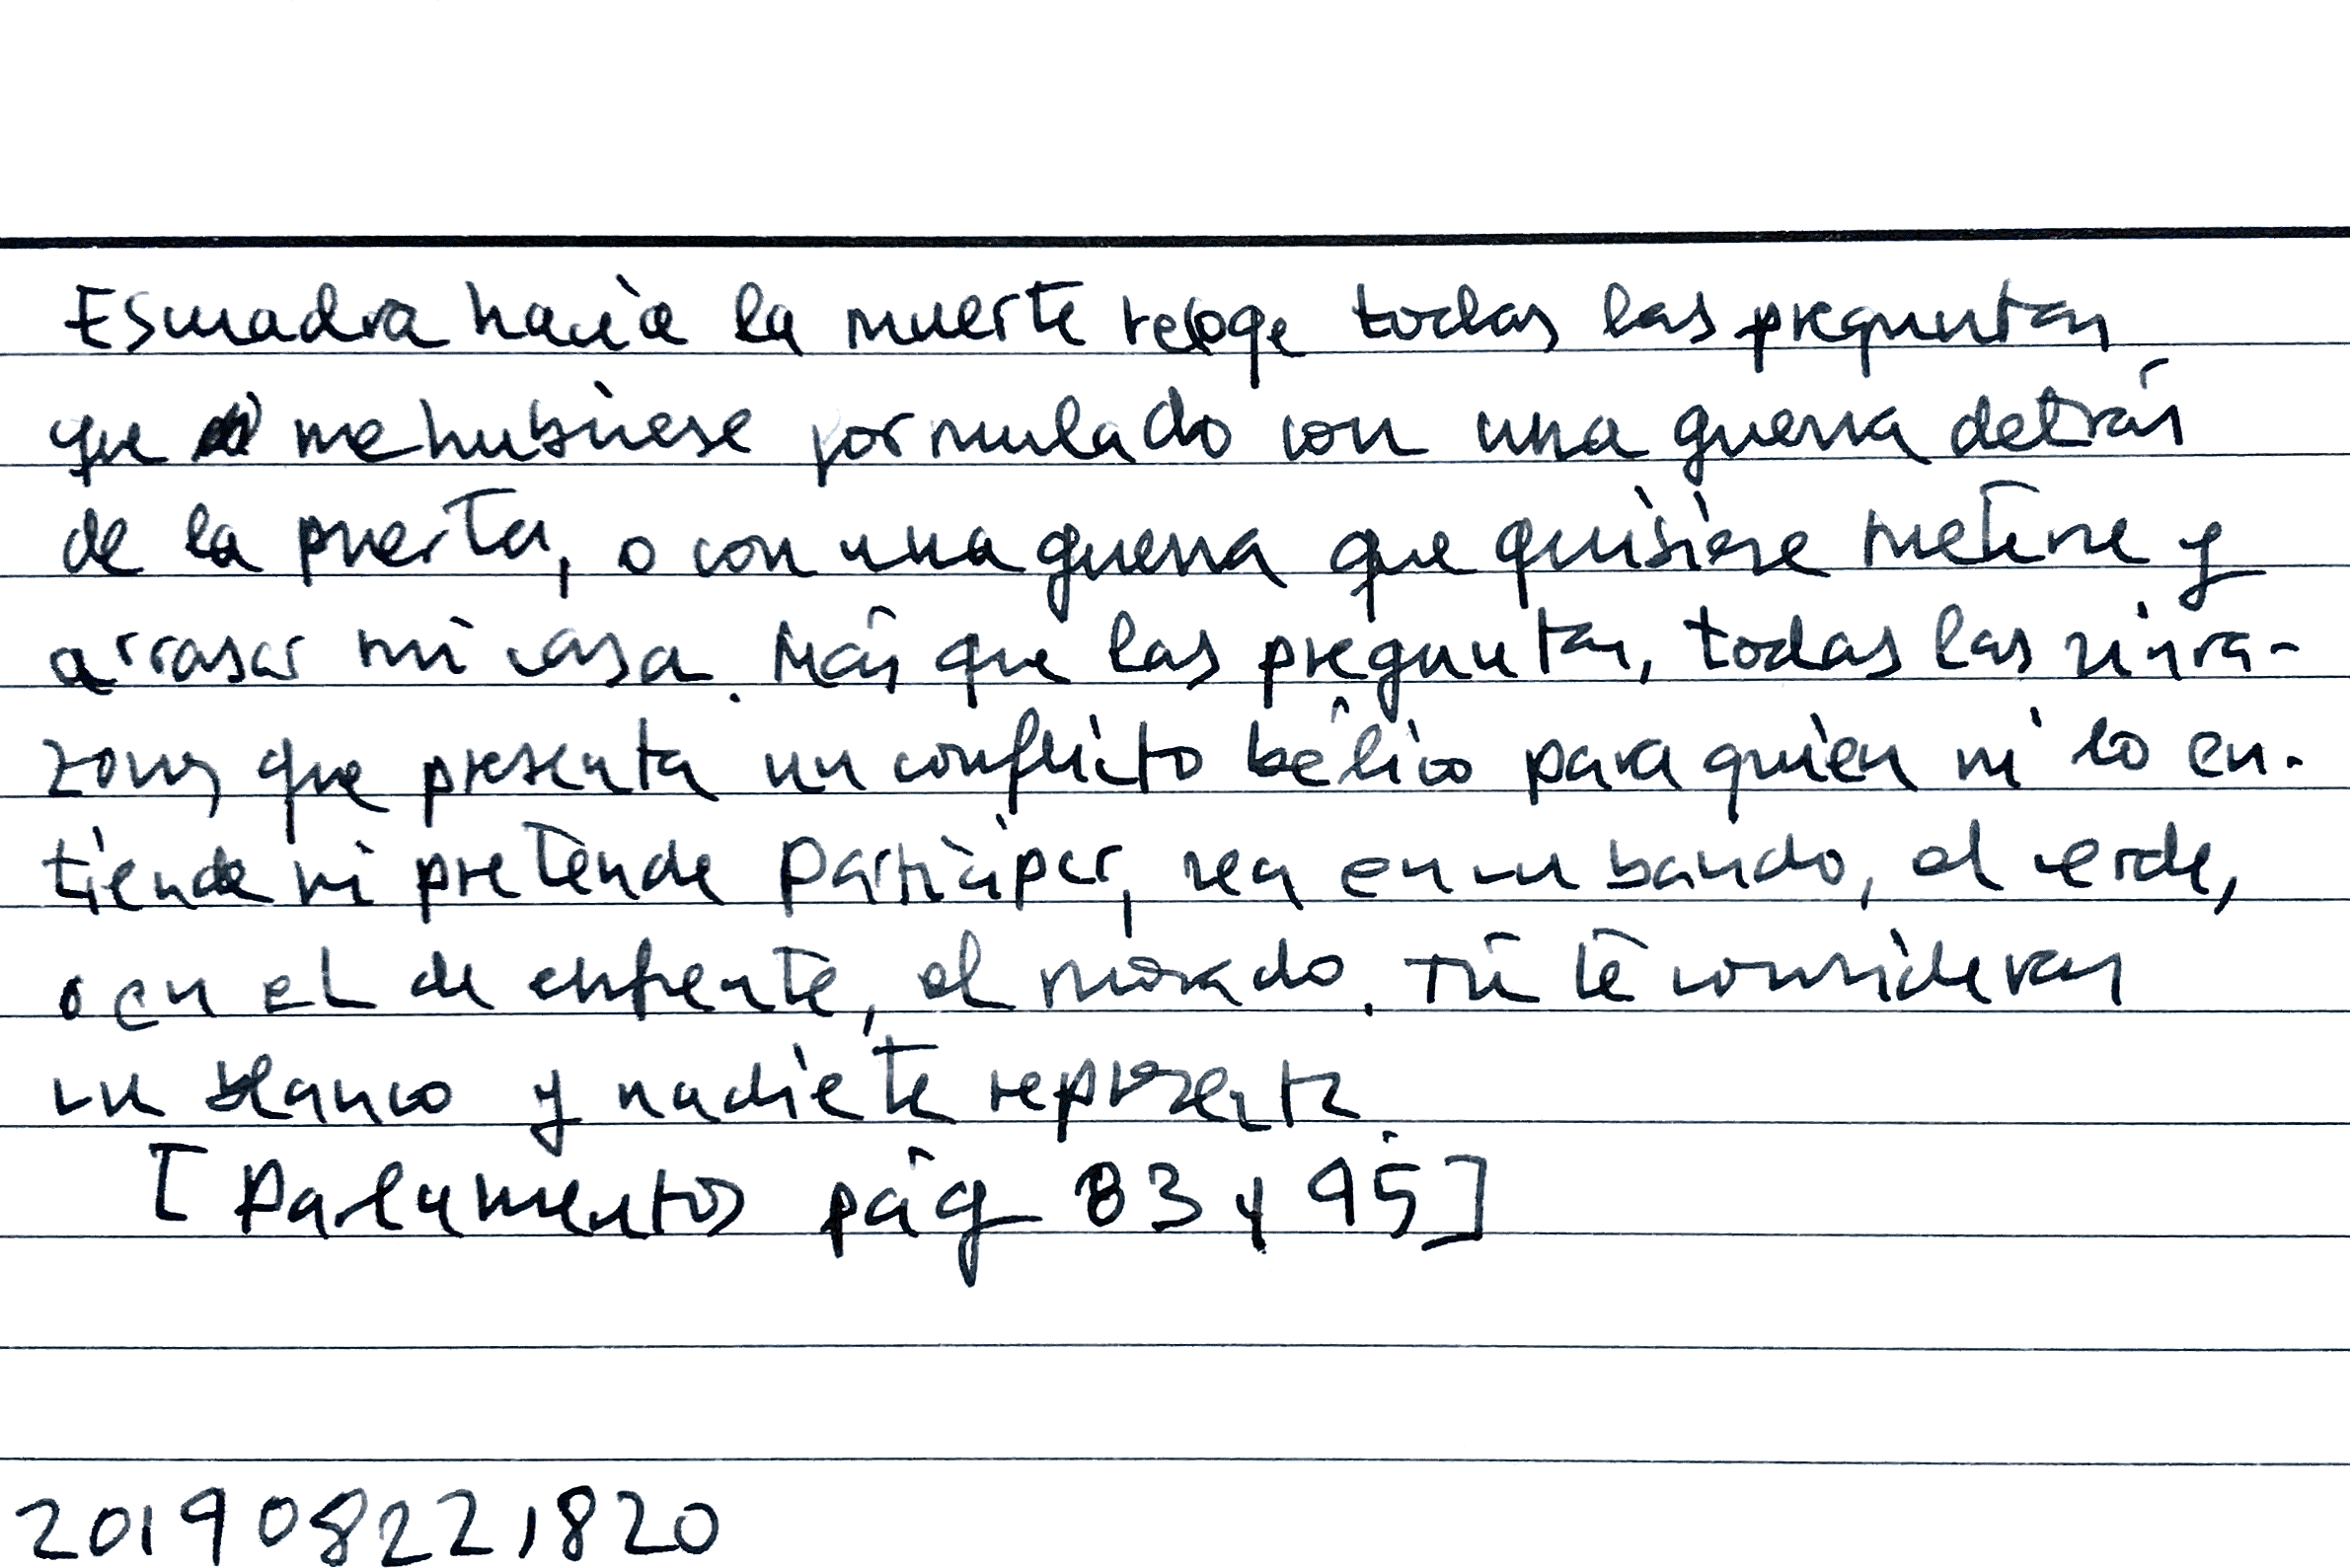 Escuadra hacia la muerte recoge todas las preguntas
que me hubiese formulado con una guerra detrás
de la puerta, o con una guerra que quisiese meterse y
arrasar mi casa. Más que las preguntas, todas las sinra-
zones que presenta un conflicto bélico para quien ni lo en-
tiende ni pretende participar, sea en un bando, el verde,
o en el de enfrente, el morado. Tú te consideras
un blanco y nadie te representa.
[Parlamentos pág 83 y 95]
201908221820